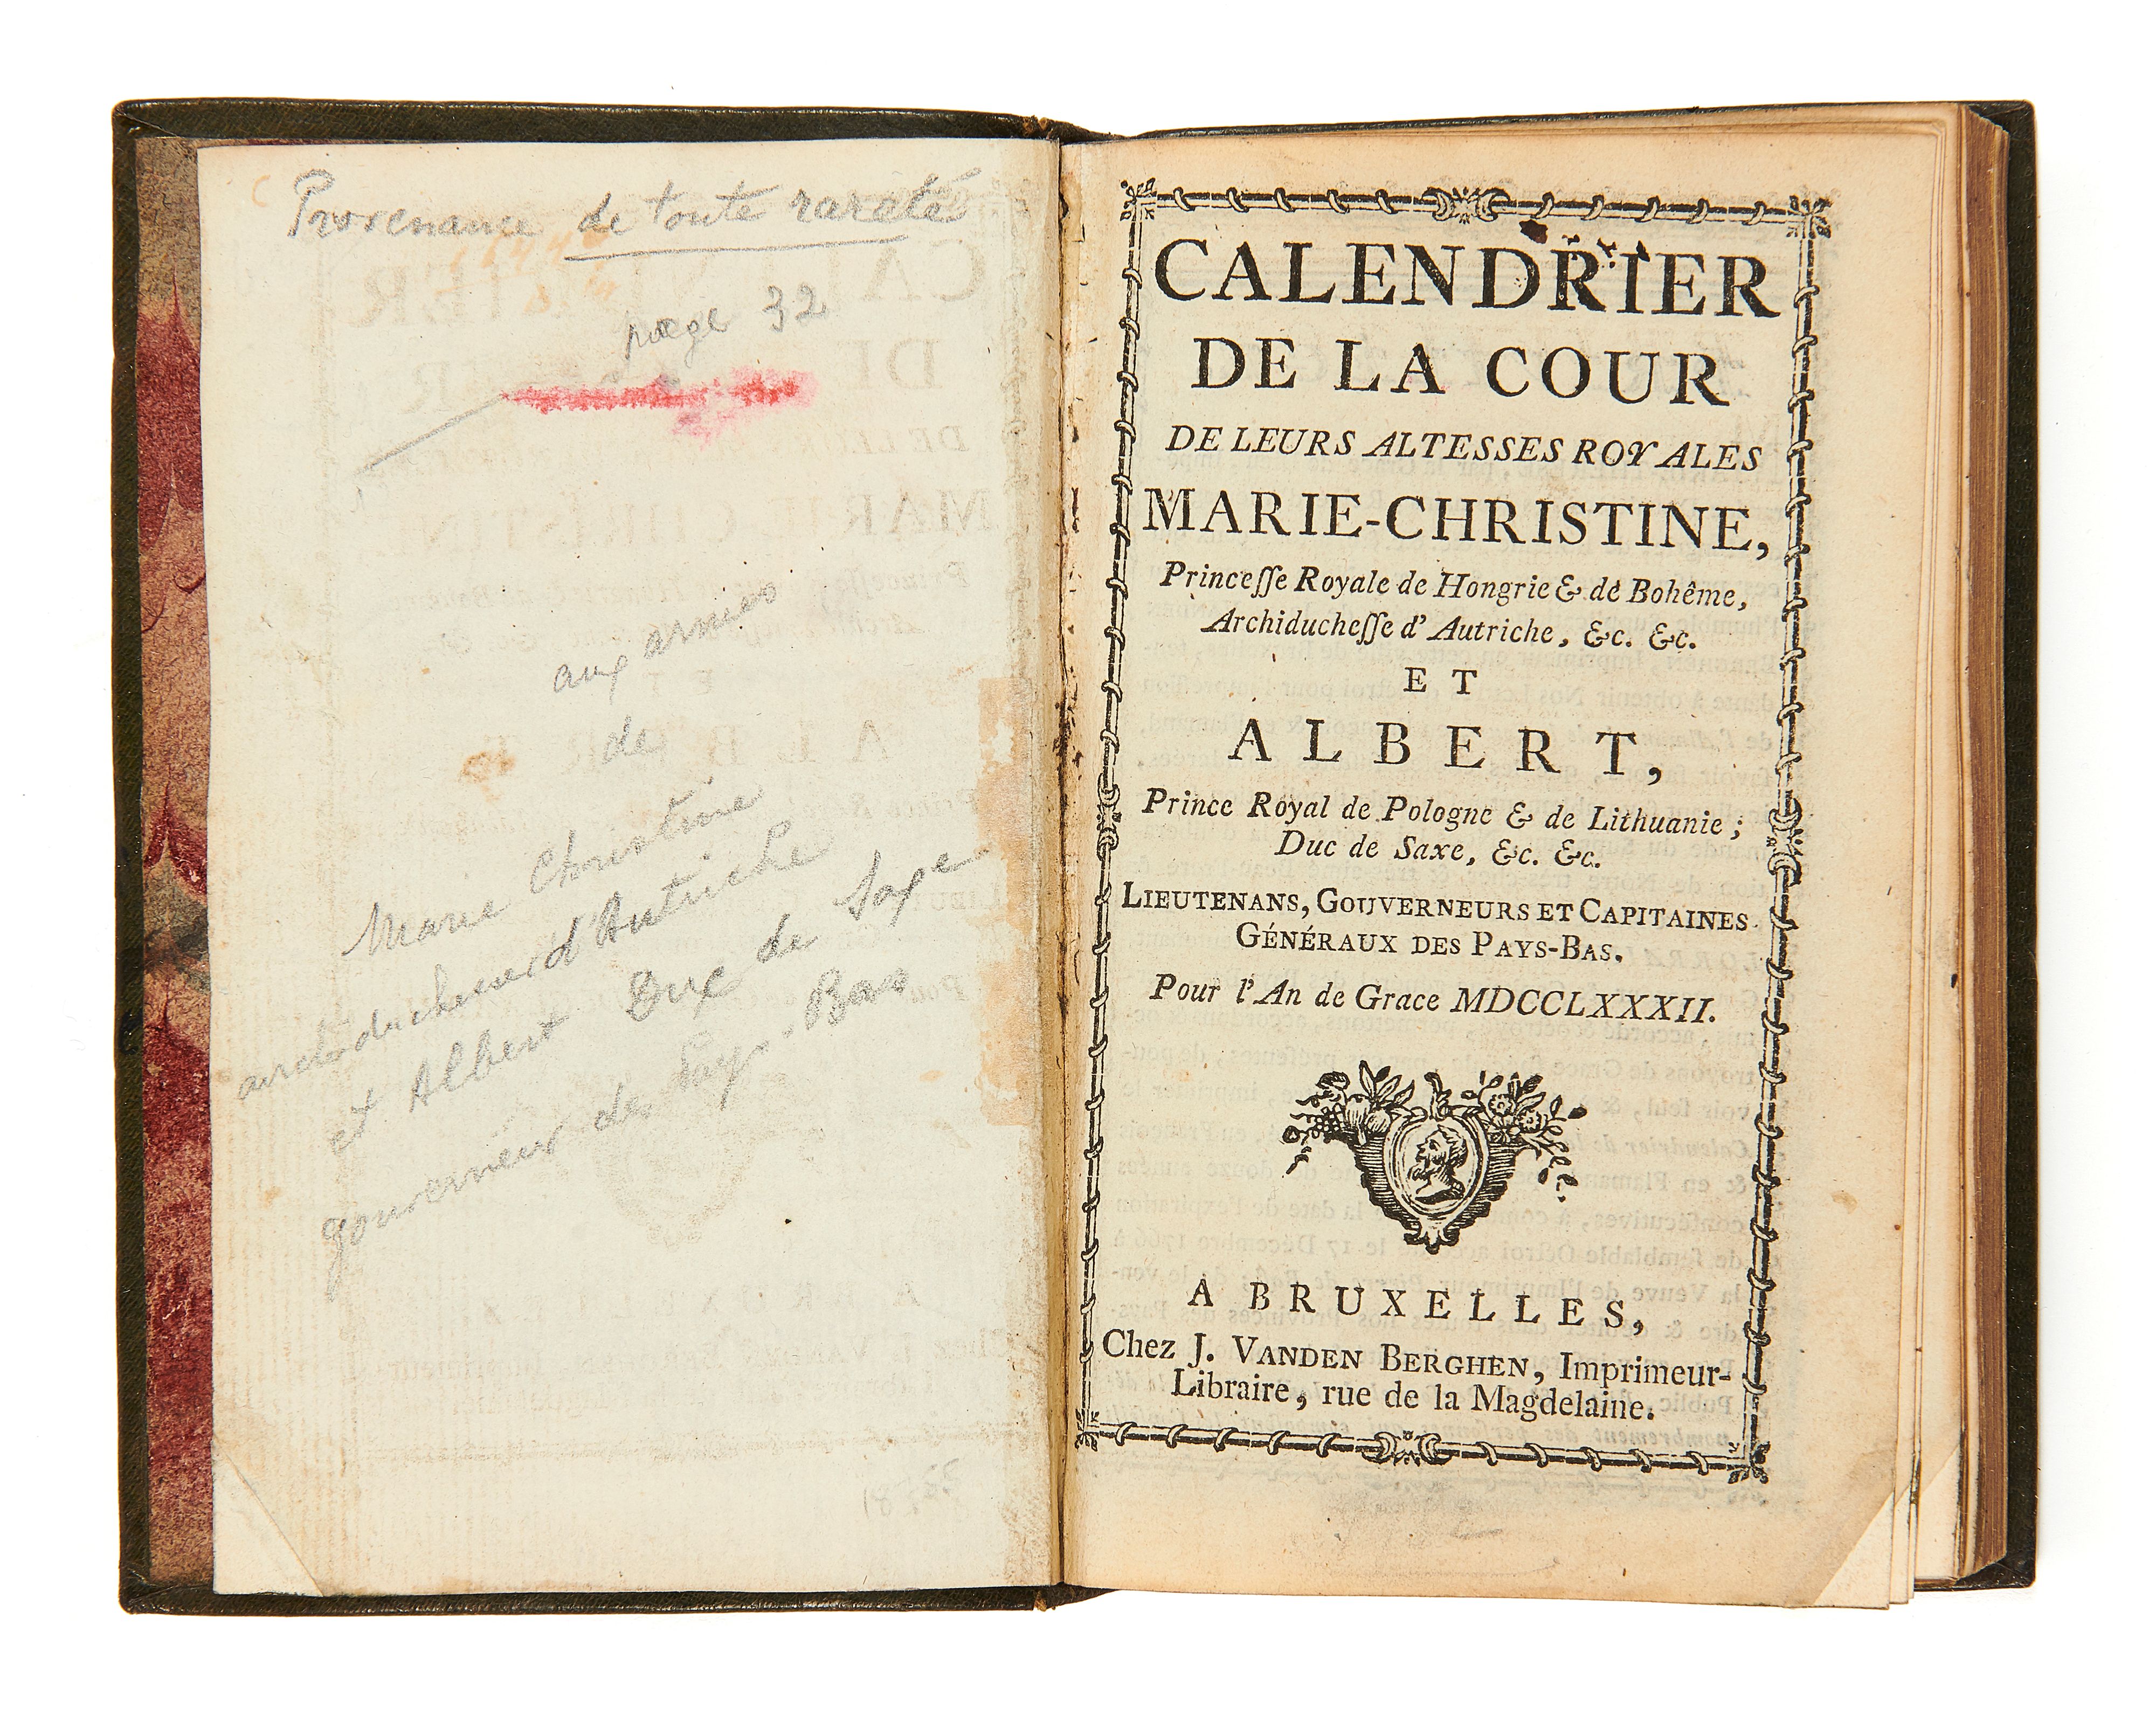 Provenance de toute rareté
page 32
aux armes
de
Marie Christine
archiduchesse d'Autriche
et Albert Duc de Saxe
gouverneur des Pays-Bas
CALENDRIER
DE LA COUR
DE LEURS ALTESSES ROYALES
MARIE-CHRISTINE,
Princeſſe Royale de Hongrie & de Bohême,
Archiducheſſe d' Autriche, &c. &c.
ET
ALBERT,
Prince Royal de Pologne & de Lithuanie ;
Duc de Saxe, &c. &c.
LIEUTENANS, GOUVERNEURS ET CAPITAINES
GÉNÉRAUX DES PAYS-BAS.
Pour l'An de Grace MDCCLXXXII.
A BRUXELLES,
Chez J. VANDEN BERGHEN, Imprimeur-
Libraire, rue de la Magdelaine.